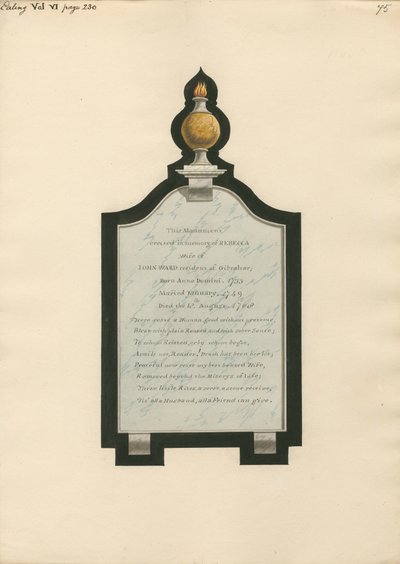 Ealing Vol VI page 230
75
This Monument,
erected in memory of REBECCA
Wife of
IOHN WARD resident at Gibraltar;
Born Anno Domini. 1733
Married January, 1749
Died the 10th August, 1768
Here rests a Woman, good without pretence,
Blest with plain Reason, and with sober Sense;
To whom Related, or by whom begot,
Avails not, Reader! Death has been her lot;
Peaceful now rests my best beloved Wife,
Removed beyond the Miserys of life;
These little Rites, a verse, a stone receive,
Tis' all a Husband, all a Friend can give.